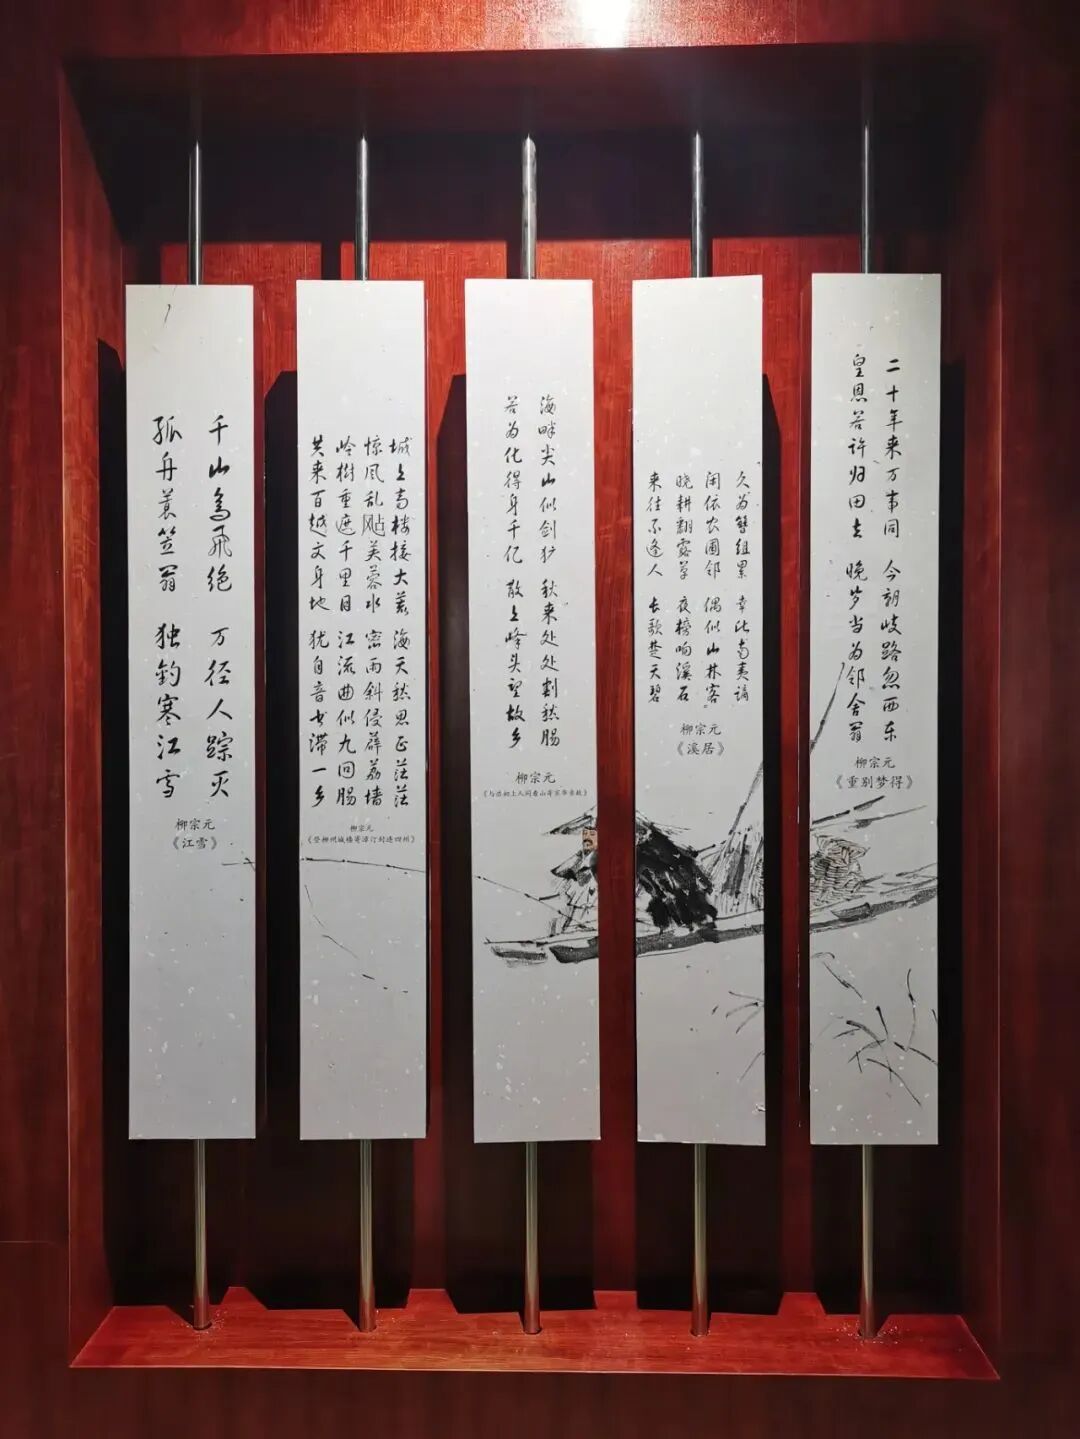 二十年来万事同 今朝岐路忽西东
皇恩若许归田去 晚岁当为邻舍翁
柳宗元
《重别梦得》
久为簪组累 幸此南夷谪
闲依农圃邻 偶似山林客
晓耕翻露草 夜榜响溪石
来往不逢人 长歌楚天碧
柳宗元
《溪居》
海畔尖山似剑铓 秋来处处割愁肠
若为化得身千亿 散上峰头望故乡
柳宗元
《与浩初上人同看山寄京华亲故》
城上高楼接大荒 海天愁思正茫茫
惊风乱飐芙蓉水 密雨斜侵薜荔墙
岭樹重遮千里目 江流曲似九回肠
共来百越文身地 犹自音书滞一乡
柳宗元
《登柳州城楼寄漳汀封连四州》
千山鸟飞绝 万径人踪灭
孤舟蓑笠翁 独钓寒江雪
柳宗元
《江雪》